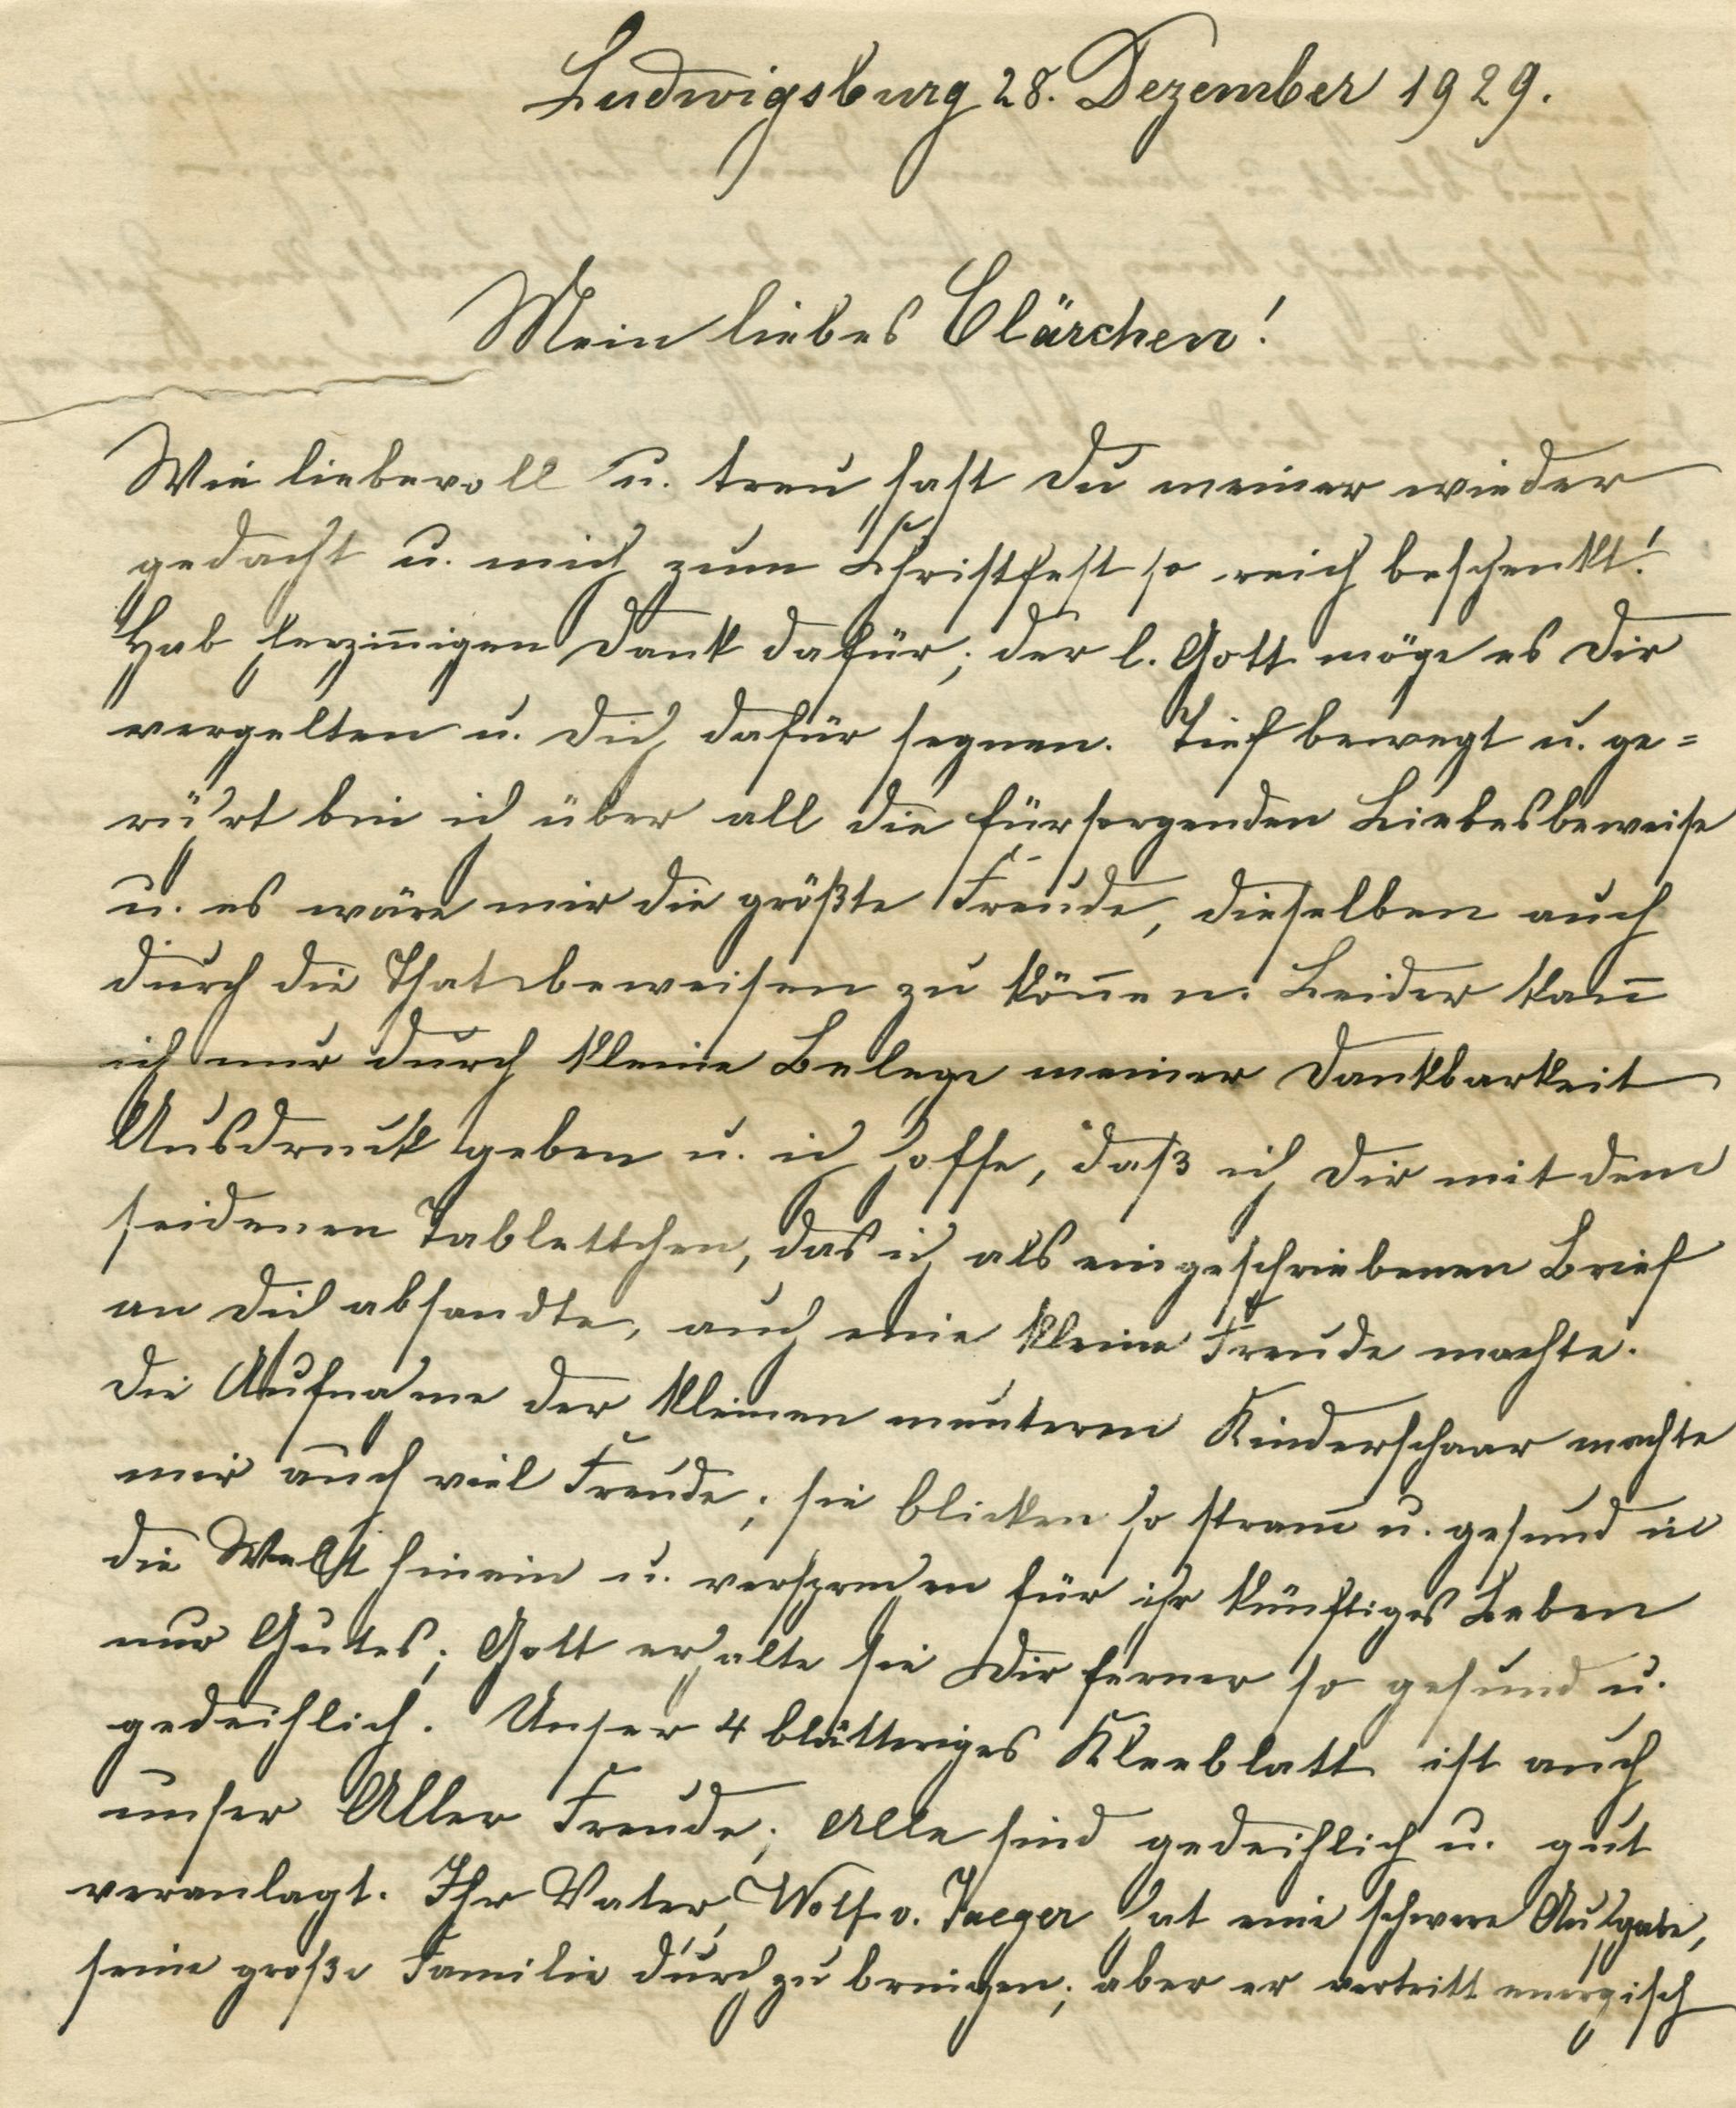 Ludwigsburg 28. Dezember 1929.
Mein liebes Clärchen!
Wie liebevoll u. treu hast Du meiner wieder
gedacht u. mich zum Christfest so reich beschenkt!
Hab herzinnigen Dank dafür; der l. Gott möge es Dir
vergelten u. Dich dafür segnen. Tief bewegt u. ge=
rührt bin ich über all die fürsorgenden Liebesbeweise
u. es wäre mir die größte Freude, dieselben auch
durch die That beweisen zu können. Leider kann
ich nur durch kleine Belege meiner Dankbarkeit
Ausdruck geben u. ich hoffe, daß ich Dir mit dem
seidenen Tablettchen, das ich als eingeschriebenen Brief
an Dich absandte, auch eine kleine Freude machte.
Die Aufnahme der kleinen munteren Kinderschaar machte
mir auch viel Freude; sie blicken so stramm u. gesund in
die Welt hinein u. versprechen für ihr künftiges Leben
nur Gutes; Gott erhalte sie Dir ferner so gesund u.
gedeihlich. Unser 4 blätteriges Kleeblatt ist auch
unser Aller Freude; Alle sind gedeihlich u. gut
veranlagt. Ihr Vater, Wolf v. Jaeger hat eine schwere Aufgabe,
seine große Familie durchzubringen; aber er vertritt energisch